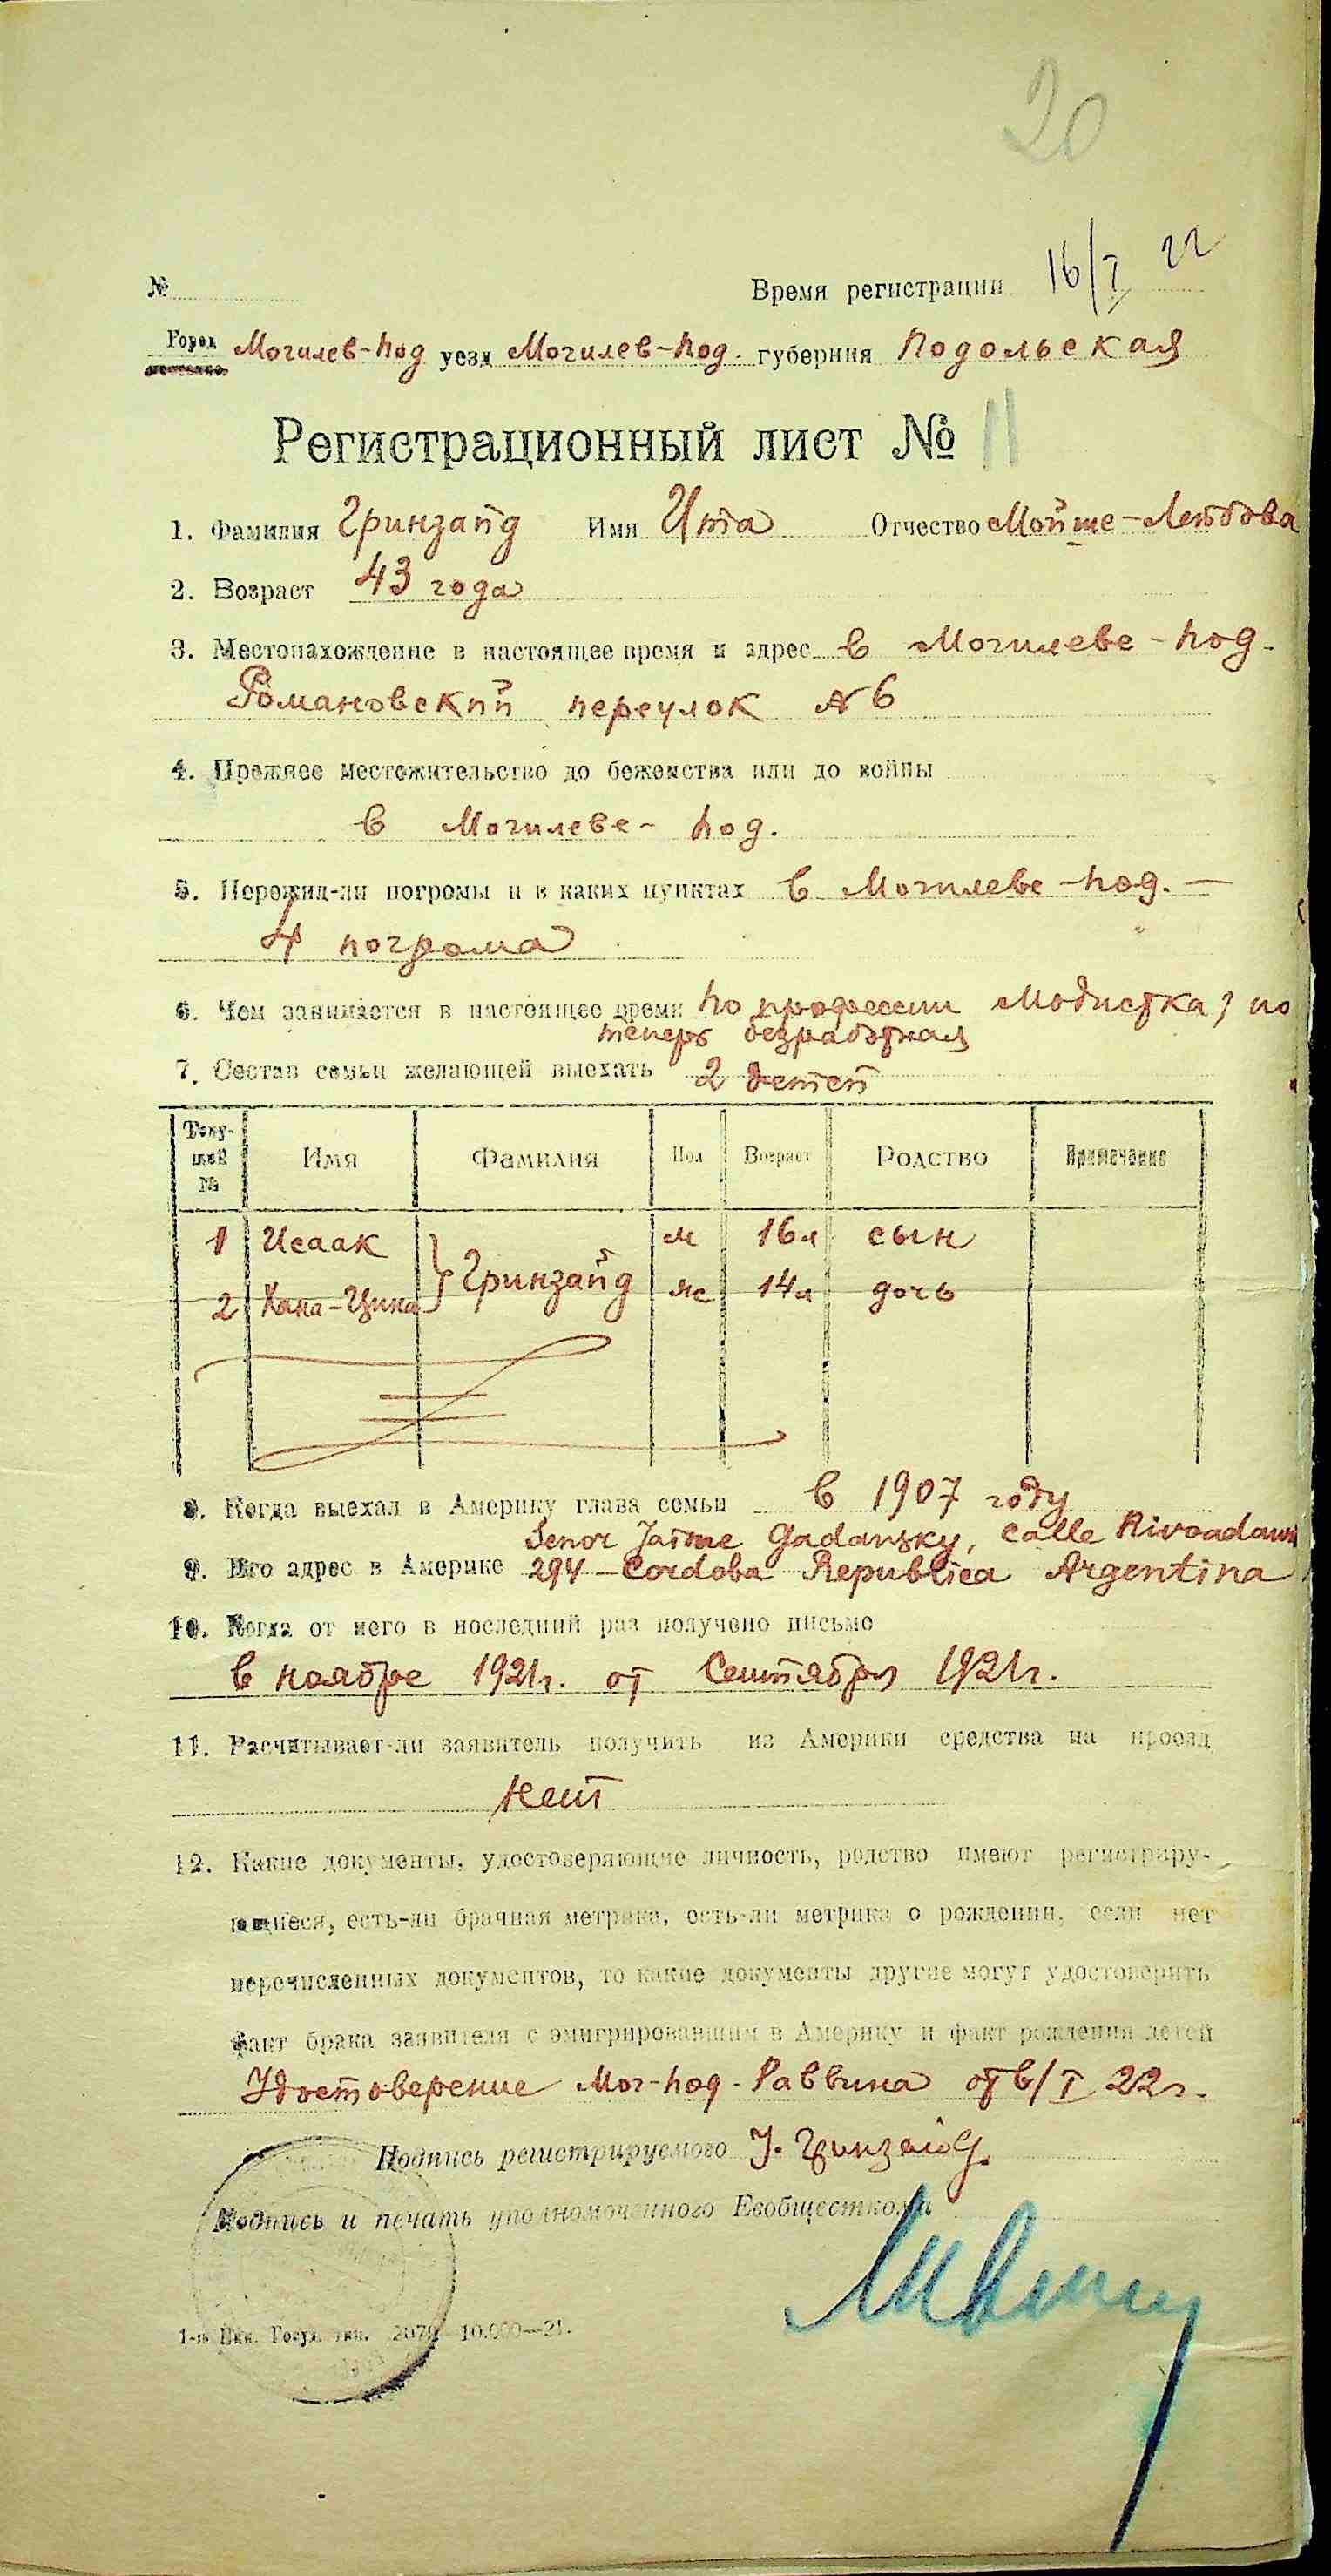 20
№ Время регистрации 16/I 22
Город Могилев-Под уезд Могилев-Под. губерния Подольская
местечко
Регистрационный лист № 11
1. Фамилия Гринзайд Имя Ита Отчество Мойше-Лейбова
2. Возраст 43 года
3. Местонахождение в настоящее время и адрес в Могилеве-Под.
Романовский переулок № 6
4. Прежнее местожительство до беженства или до войны
в Могилеве-Под.
5. Пережил-ли погромы и в каких пунктах в Могилеве-Под. —
4 погрома
6. Чем занимается в настоящее время по профессии Модистка, но
теперь безработная
7. Состав семьи желающей выехать 2 детей
Теку-
щий
№ Имя Фамилия Пол Возраст Родство Примечание
1 Исаак } Гринзайд м 16л сын
2 Хана-Цина ж 14л дочь
8. Когда выехал в Америку глава семьи в 1907 году
Senor Jaime Gadansky, Calle Rivoadavia
9. Его адрес в Америке 294 — Cordoba Republica Argentina
10. Когда от него в последний раз получено письмо
в ноябре 1921г. от Сентября 1921г.
11. Расчитывает-ли заявитель получить из Америки средства на проезд
Нет
12. Какие документы, удостоверяющие личность, родство имеют регистриру-
ющиеся, есть-ли брачная метрика, есть-ли метрика о рождении, если нет
перечисленных документов, то какие документы другие могут удостоверить
факт брака заявителя с эмигрировавшим в Америку и факт рождения детей
Удостоверение Мог-Под. Раввина от 6/I 22г.
Подпись регистрируемого И. Гринзайд.
Подпись и печать уполномоченного Евобщесткома
1-я Вин. Госуд. тип. 2079—10.000—21.